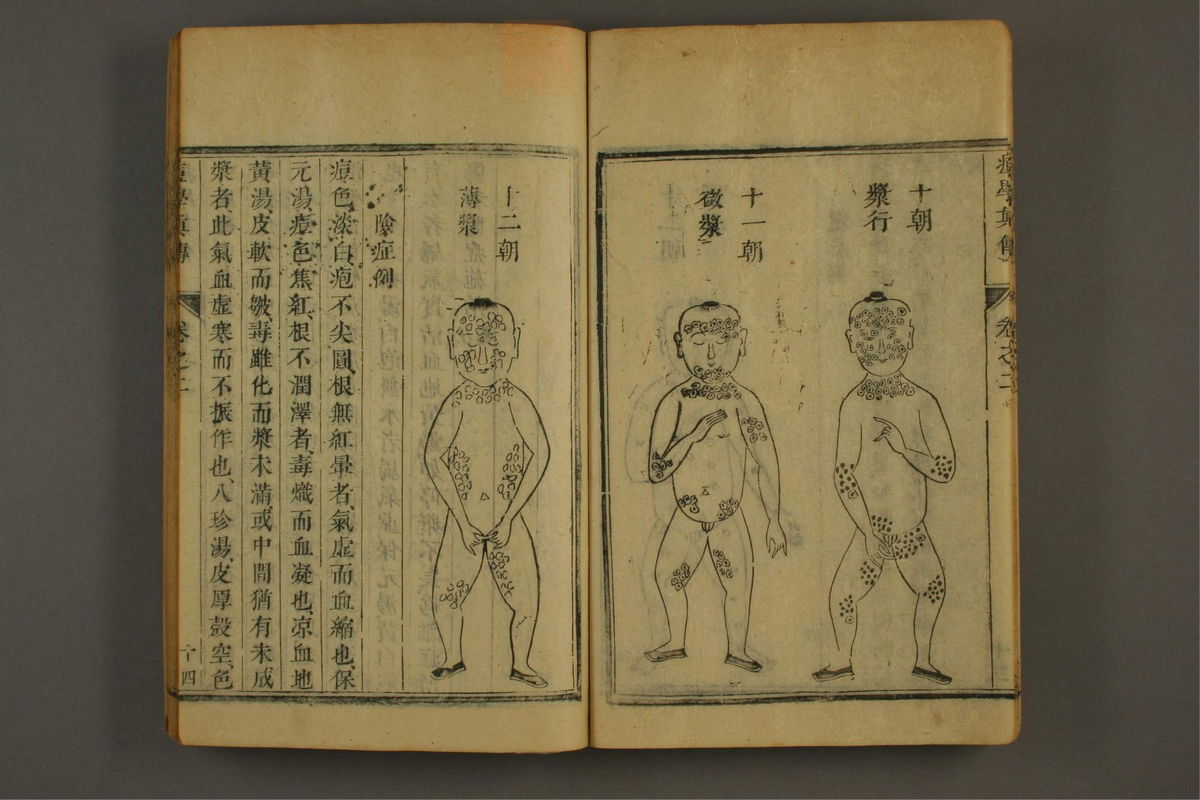 十朝
漿行
十一朝
微漿
十二朝
薄漿
險症例
痘色淡白疱不尖圓根無紅暈者氣虛而血縮也保
元湯痘色焦紅根不潤澤者毒熾而血凝也凉血地
黃湯皮軟而皺毒雖化而漿未滿或中間猶有未成
漿者此氣血虛寒而不振作也八珍湯皮厚殼空色
痘學真傳
卷之二
十四
痘學
卷之二